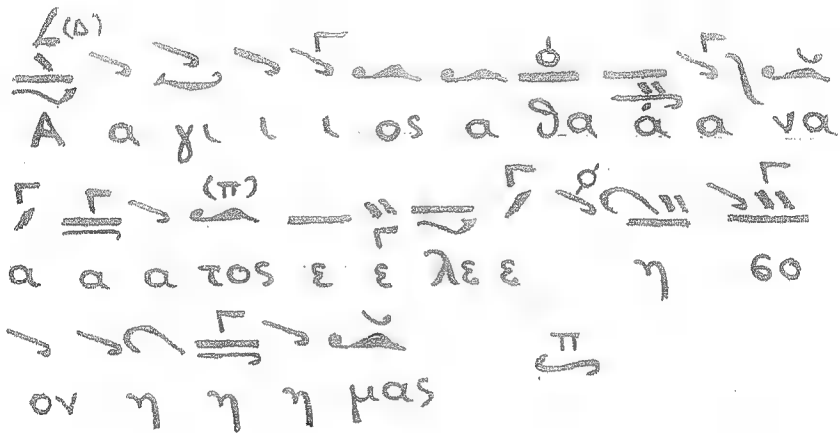 Α α γι ι ι ος α θα ά α να
α α α τος ε ε λε ε η σο
ον η η η μας